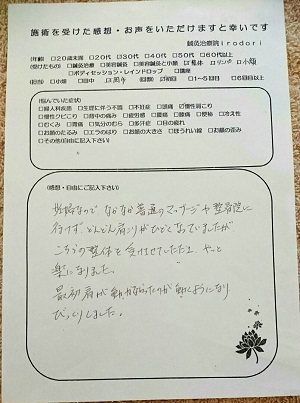 施術を受けた感想・お声をいただけますと幸いです
鍼灸治療院 irodori
(年齢) □20歳未満 □20代 □30代 □40代 □50代 □60代以上
(受けたもの) □鍼灸治療 □美容鍼灸 □美容鍼灸と小顔 □整体 □小顔
□ボディセッション・レインドロップ □講座
(担当) □小畑 □田中 (回数) □初回 □1~5回目 □6回目以上
(悩んでいた症状)
□婦人科疾患 □生理に伴う不調 □不妊症 □頭痛 □慢性肩こり
□慢性クビこり □背中の痛み □疲労感 □腰痛 □膝痛 □便秘 □冷え性
□むくみ □胃痛 □気分のむら □多汗症 □目の疲れ
□お顔のたるみ □エラのはり □お顔の大きさ □ほうれい線 □お顔の歪み
□その他自由に記入下さい
(感想・自由にご記入下さい)
妊婦なので なかなか普通のマッサージや整骨院に
行けず、どんどん肩こりがひどくなっていましたが
こちらの整体を受けさせていただき、やっと
楽になりました。
最初肩が動かなかったのが動くようになり
びっくりしました。